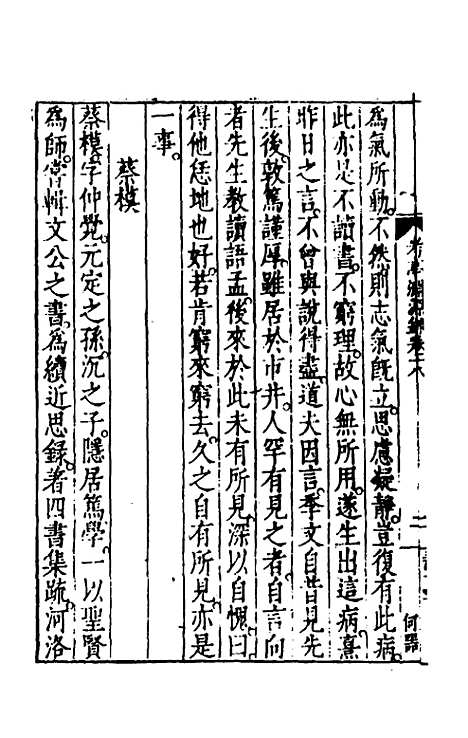 爲氣所動不然則志氣既立思慮凝靜豈復有此病
此亦是不讀書不窮理故心無所用遂生出這病熹
昨日之言不曾與說得盡道夫因言季文自昔見先
生後敦篤謹厚雖居於市井人罕有見之者自言向
者先生教讀語孟後來於此未有所見深以自愧曰
得他恁地也好若肯窮來窮去久之自有所見亦是
一事
蔡模
蔡模字仲覺元定之孫沉之子隱居篤學一以聖賢
爲師嘗輯文公之書爲續近思録著四書集疏河洛